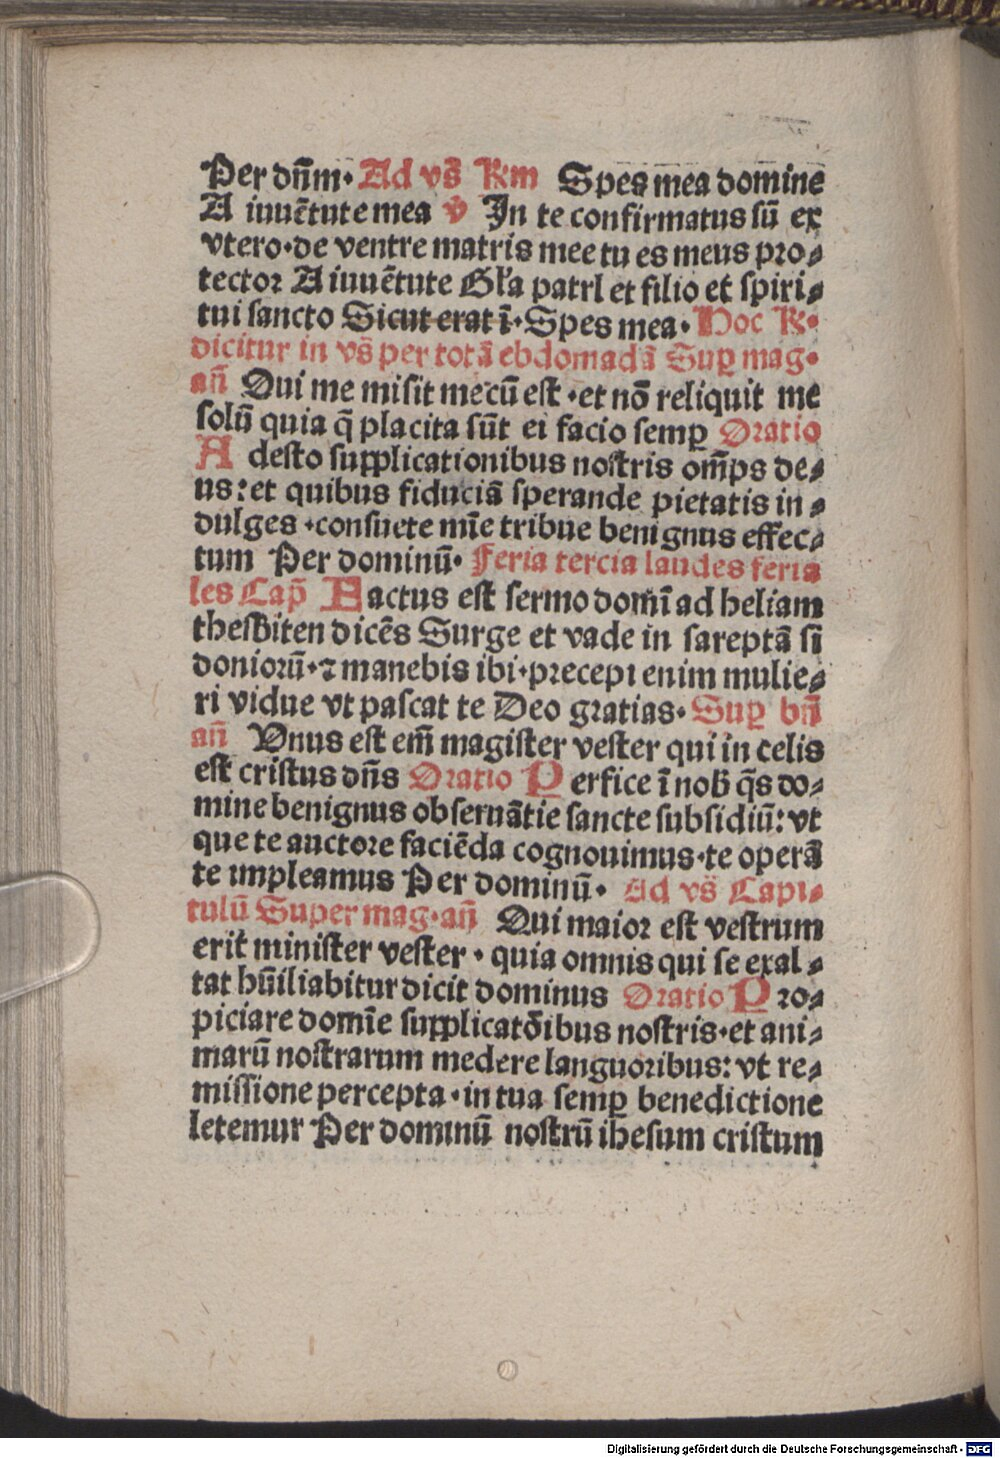 Per dñm· Ad vs̄ Rm Spes mea domine
A iuuētute mea v̄ In te confirmatus sū ex
vtero·de ventre matris mee tu es meus pro⸗
tector A iuuētute Gła patrl et filio et spiri⸗
tui sancto Sicut erat ī·Spes mea· Hoc R·
dicitur in vs̄ per totā ebdomadā Suꝑ mag·
añ Qui me misit mecū est ·et nō reliquit me
solū quia q̄ placita sūt ei facio semꝑ Oratio
A desto supplicationibus nostris om̄ps de⸗
us: et quibus fiduciā sperande pietatis in⸗
dulges ·consuete mīe tribue benignus effec⸗
tum Per dominū· Feria tercia laudes feria
les Cap̄ Factus est sermo domī ad heliam
thesbiten dicēs Surge et vade in sareptā si
doniorū·⁊ manebis ibi·precepi enim mulie⸗
ri vidue vt pascat te Deo gratias· Suꝑ bñ
añ Vnus est em̄ magister vester qui in celis
est cristus dñs Oratio Perfice ī nob q̄s do⸗
mine benignus obseruātie sancte subsidiū: vt
que te auctore faciēda cognouimus·te operā
te impleamus Per dominū· Ad vs̄ Capi⸗
tulū Super mag·añ Qui maior est vestrum
erit minister vester · quia omnis qui se exal⸗
tat hūiliabitur dicit dominus Oratio Pro⸗
piciare domīe supplicatōibus nostris·et ani⸗
marū nostrarum medere languoribus: vt re⸗
missione percepta ·in tua semꝑ benedictione
letemur Per dominū nostrū ihesum cristum
Digitalisierung gefördert durch die Deutsche Forschungsgemeinschaft · DFG